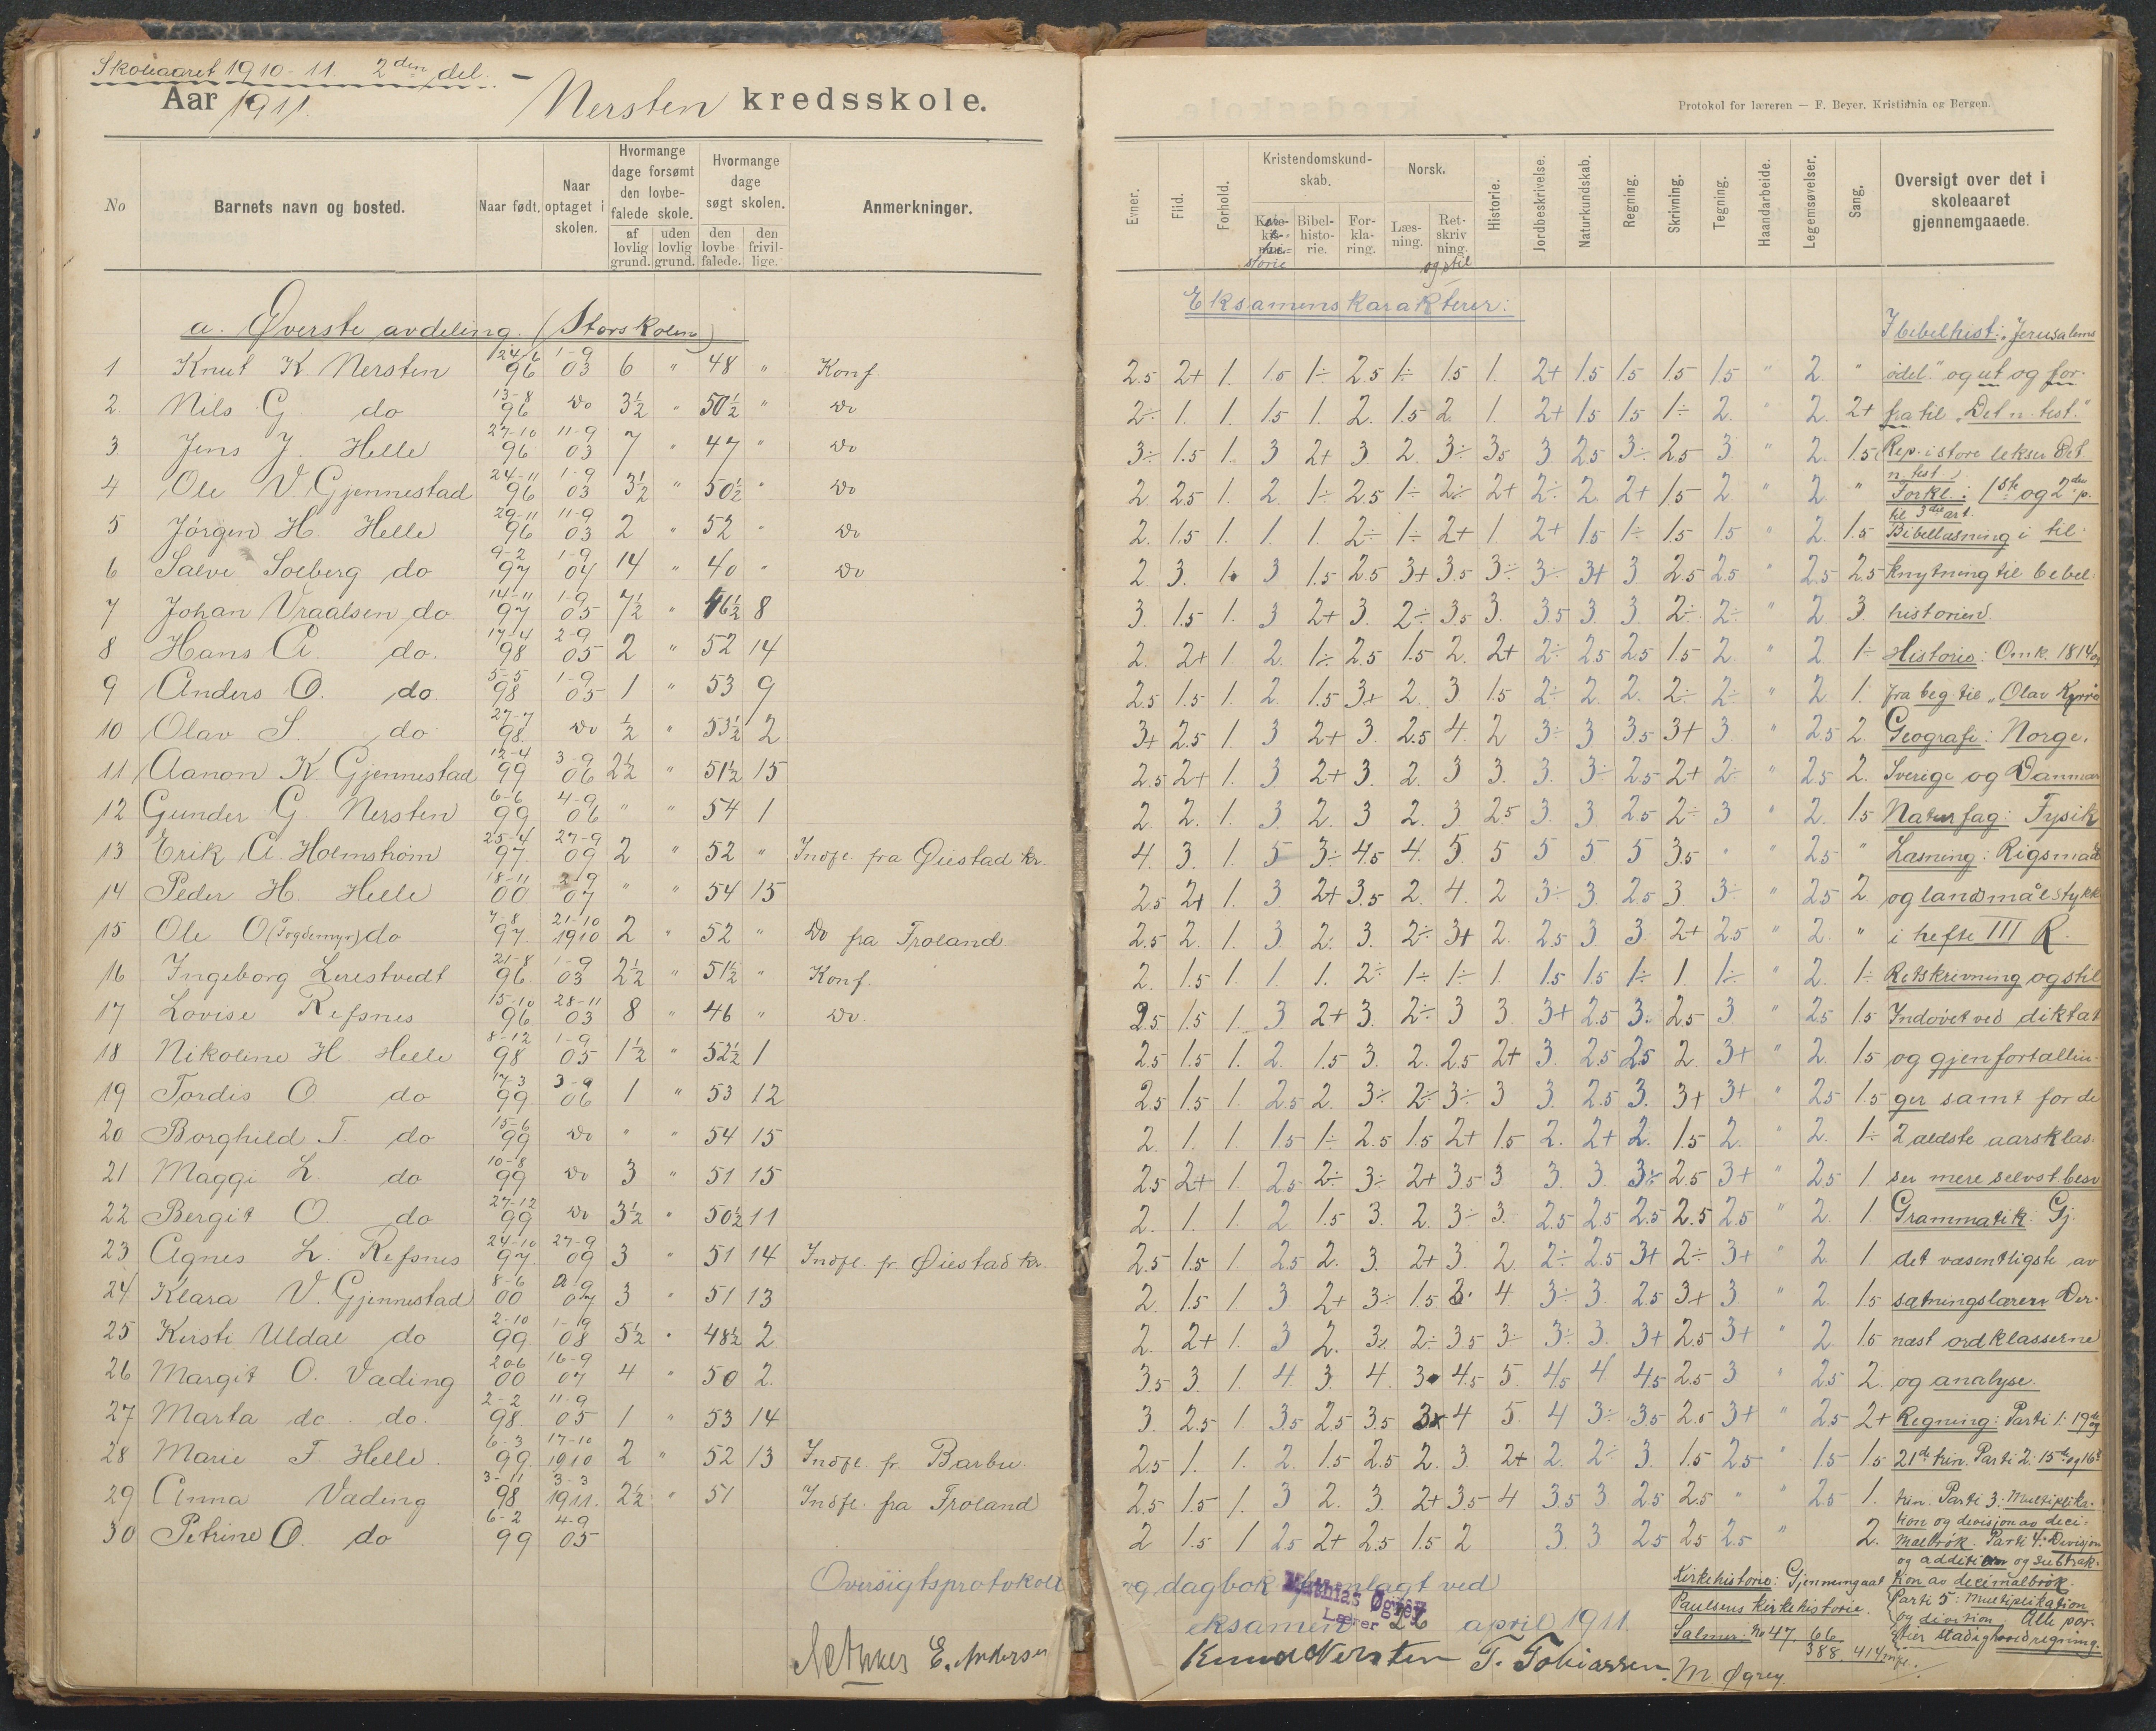 Skoleaaret 1910-11. 2den del. -
Aar 1911. Nersten kredsskole.
No
Barnets navn og bosted.
Naar født.
Naar optaget i skolen.
Hvormange dage forsømt den lovbefalede skole.
af lovlig grund.
uden lovlig grund.
Hvormange dage søgt skolen.
den lovbefalede.
den frivillige.
Anmerkninger.
a. Øverste avdeling. (Storskolen)
1 Knut K. Nersten 24/6 96 1-9 03 6 " 48 " Konf.
2 Nils G. do 13-8 96 do 3½ " 50½ " do
3 Jens J. Helle 27-10 96 11-9 03 7 " 47 " do
4 Ole V. Gjennestad 24-11 96 1-9 03 3½ " 50½ " do
5 Jørgen H. Helle 29-11 96 11-9 03 2 " 52 " do
6 Salve Solberg do 9-2 97 1-9 04 14 " 40 " do
7 Johan Vraalsen do 14-11 97 1-9 05 7½ " 46½ 8
8 Hans A. do. 17-4 98 2-9 05 2 " 52 14
9 Anders O. do. 5-5 98 1-9 05 1 " 53 9
10 Olav S. do 27-7 98 do ½ " 53½ 2
11 Aanon K. Gjennestad 12-4 99 3-9 06 2½ " 51½ 15
12 Gunder G. Nersten 6-6 99 4-9 06 " " 54 1
13 Erik A. Holmstrøm 25-4 97 27-9 09 2 " 52 " Indfl. fra Øiestad kr.
14 Peder H. Helle 18-11 00 2-9 07 " " 54 15
15 Ole O (Fogdemyr) do 7-8 97 21-10 1910 2 " 52 " Do fra Froland
16 Ingeborg Lerestvedt 21-8 96 1-9 03 2½ " 51½ " Konf.
17 Lovise Refsnes 15-10 96 28-11 03 8 " 46 " do.
18 Nikoline H. Helle 8-12 98 1-9 05 1½ " 52½ 1
19 Tordis O. do 17-3 99 3-9 06 1 " 53 12
20 Borghild T. do 15-6 99 do " " 54 15
21 Maggi L. do 10-8 99 do 3 " 51 15
22 Bergit O. do 27-12 99 do 3½ " 50½ 11
23 Agnes L. Refsnes 24-10 97 27-9 09 3 " 51 14 Indfl. fr. Øiestad kr.
24 Klara V. Gjennestad 8-6 00 2-9 07 3 " 51 13
25 Kirsti Uldal do 2-10 99 1-9 08 5½ " 48½ 2
26 Margit O. Vading 20-6 00 16-9 07 4 " 50 2.
27 Marta do. do. 2-2 98 11-9 05 1 " 53 14
28 Marie F. Helle. 6-3 99 17-10 1910 2 " 52 13 Indfl. fr. Barbu.
29 Anna Vading 3-11 98 3-3 1911. 2½ " 51 Indfl. fra Froland
30 Petrine O. do 6-2 99 4-9 05
Protokol for læreren — F. Beyer, Kristiania og Bergen.
Evner.
Flid.
Forhold.
Kristendomskundskab.
Bibelhistorie.
Forklaring.
Norsk.
Læsning.
Retskrivning.
og stil
Historie.
Jordbeskrivelse.
Naturkundskab.
Regning.
Skrivning.
Tegning.
Haandarbeide.
Legemsøvelser.
Sang.
Oversigt over det i skoleaaret gjennemgaaede.
Eksamenskarakterer:
2.5 2+ 1. 1.5 1÷ 2.5 1÷ 1.5 1. 2+ 1.5 1.5 1.5 1.5 " 2. "
2÷ 1. 1. 1.5 1. 2. 1.5 2. 1. 2+ 1.5 1.5 1÷ 2. " 2. 2+
3÷ 1.5 1. 3 2+ 3 2. 3÷ 3.5 3 2.5 3÷ 2.5 3 " 2. 1.5
2 2.5 1. 2. 1÷ 2.5 1÷ 2÷ 2+ 2÷ 2. 2+ 1.5 2 " 2 "
2. 1.5 1. 1. 1. 2÷ 1÷ 2+ 1. 2+ 1.5 1÷ 1.5 1.5 " 2. 1.5
2 3. 1. 3 1.5 2.5 3+ 3.5 3÷ 3÷ 3+ 3 2.5 2.5 " 2.5 2.5
3. 1.5 1. 3 2+ 3. 2÷ 3.5 3. 3.5 3. 3. 2÷ 2÷ " 2 3.
2. 2+ 1. 2. 1÷ 2.5 1.5 2. 2+ 2÷ 2.5 2.5 1.5 2. " 2 1÷
2.5 1.5 1 2 1.5 3+ 2. 3 1.5 2÷ 2. 2. 2÷ 2÷ " 2 1.
3+ 2.5 1 3 2+ 3. 2.5 4. 2 3÷ 3 3.5 3+ 3. " 2.5 2.
2.5 2+ 1. 3. 2+ 3. 2. 3 3. 3. 3÷ 2.5 2+ 2÷ " 2.5 2.
2. 2. 1. 3. 2. 3 2. 3 2.5 3. 3. 2.5 2÷ 3 " 2. 1.5
4. 3. 1. 5 3÷ 4.5 4. 5. 5 5 5 5 3.5 " " 2.5 "
2.5 2+ 1. 3 2+ 3.5 2. 4. 2 3÷ 3. 2.5 3. 3÷ " 2.5 2
2.5 2. 1. 3. 2. 3. 2÷ 3+ 2. 2.5 3. 3. 2+ 2.5 " 2. "
2. 1.5 1 1. 1. 2÷ 1÷ 1÷ 1. 1.5 1.5 1÷ 1. 1÷ " 2. 1÷
2.5 1.5 1. 3 2+ 3. 2÷ 3 3. 3+ 2.5 3. 2.5 3 " 2.5 1.5
2.5 1.5 1. 2. 1.5 3. 2. 2.5 2+ 3. 2.5 2.5 2. 3+ " 2. 1.5
2.5 1.5 1. 2.5 2. 3÷ 2÷ 3÷ 3 3. 2.5 3. 3+ 3+ " 2.5 1.5
2. 1. 1. 1.5 1÷ 2.5 1.5 2+ 1.5 2. 2+ 2. 1.5 2. " 2. 1÷
2.5 2+ 1. 2.5 2÷ 3÷ 2+ 3.5 3 3. 3. 3÷ 2.5 3+ " 2.5 1.
2. 1. 1. 2 1.5 3. 2. 3÷ 3. 2.5 2.5 2.5 2.5 2.5 " 2 1
2.5 1.5 1 2.5 2. 3. 2+ 3. 2 2÷ 2.5 3+ 2÷ 3+ " 2. 1.
2. 1.5 1. 3. 2+ 3÷ 1.5 3. 4 3÷ 3. 2.5 3+ 3. " 2. 1.5
2. 2+ 1. 3 2. 3÷ 2÷ 3.5 3÷ 3÷ 3. 3+ 2.5 3+ " 2. 1.5
3.5 3. 1. 4 3. 4. 3 4.5 5. 4.5 4. 4.5 2.5 3 " 2.5 2.
3. 2.5 1. 3.5 2.5 3.5 3+ 4 5. 4 3÷ 3.5 2.5 3+ " 2.5 2+
2.5 1. 1. 2. 1.5 2.5 2. 3 2+ 2. 2÷ 3. 1.5 2.5 " 1.5 1.5
2.5 1.5 1. 3 2. 3. 2+ 3.5 4 3.5 3. 2.5 2.5 " " 2.5 1.
2 1.5 1 2.5 2+ 2.5 1.5 2 3. 3. 2.5 2.5 2.5 " 2.
I bibelhist: "Jerusalems
ødel." og ut og for-
fra til "Det n. test."
Rep. i store lekser Det
n. test.)
Forkl.: 1ste og 2den p.
til 3die art.
Bibellæsning i til-
knytning til bibel-
historien.
Historie: Omk. 1814 og
fra beg. til "Olav Kyrre"
Geografi: Norge,
Sverige og Danmar
Naturfag: Fysik
Læsning: Rigsmåls
og landsmålstykk
i hefte III R.
Retskrivning og stil
Indøvet ved diktat
og gjenfortællin-
ger samt for de
2 ældste aarsklas-
ser mere selvst. besv
Grammatik: Gj.
det væsentligste av
sætningslæren. Der-
næst ordklasserne
og analyse.
Regning: Parti 1: 19de og
21de trin. Parti 2: 15de og 16de
trin. Parti 3: Multiplika-
tion og divisjon av deci-
malbrøk. Parti 4: Divisjon
og addition og subtrak-
tion av decimalbrøk.
Parti 5: Multiplikation
og division. Alle par-
tier stadig hovedregning.
Kirkehistorie: Gjennemgaat
Paulsens kirkehistorie.
Salmer: No 47, 66,
388, 414
Oversigtsprotokoll og dagbok fremlagt ved
eksamen 26 april 1911.
Mathias Øgrey
Lærer
E. Andersen
Knud Nersten T. Tobiassen
M. Øgrey.